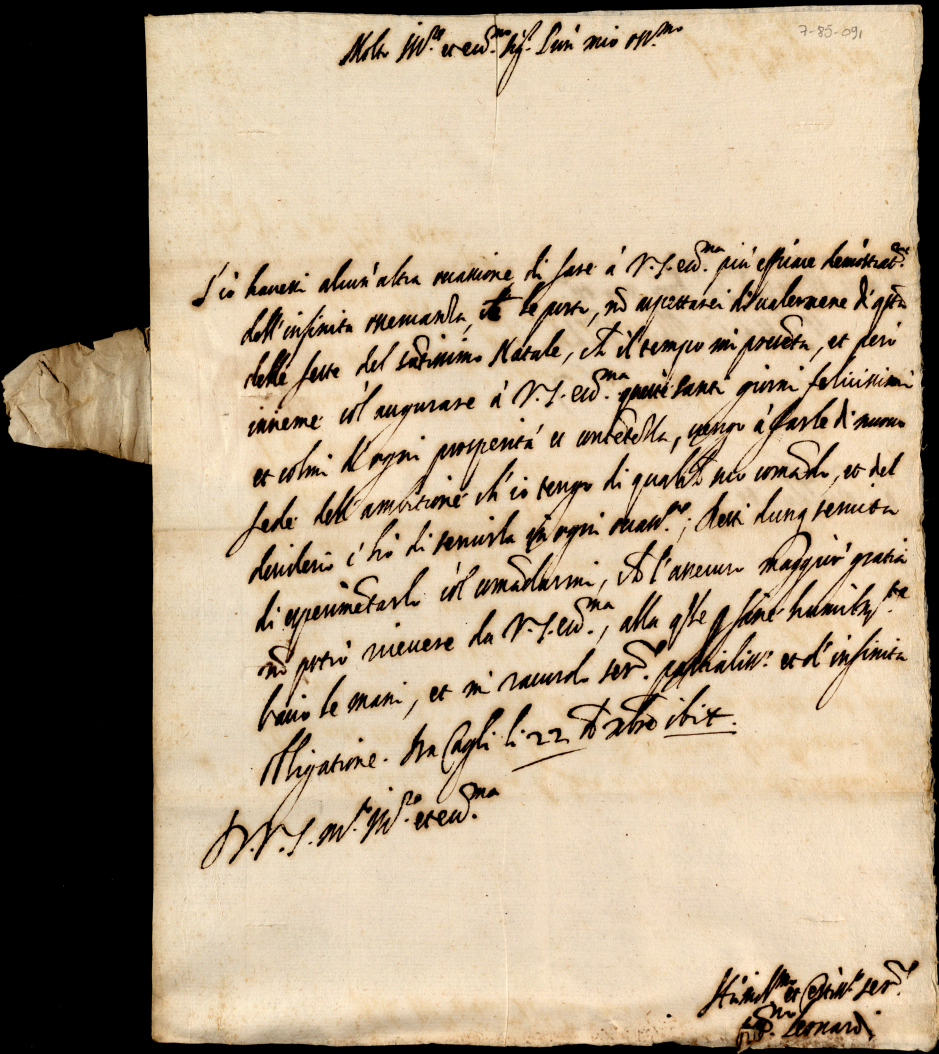 7-85-091
Molto Ill.re et ecc.mo Sig.r P.ron mio oss.mo
S'io havessi alcun'altra occasione di fare à V.S. ecc.ma più efficace demostrat.e
dell'infinita osservanza, ch le porto, nõ aspettarei di valermene d'
delle feste del Natale, ch il tempo mi, et però
insieme col augurare à V.S. ecc.ma questi santi giorni felicissimi
et colmi d'ogni prosperità et, vengo à farle di nuovo
fede dell'ambitione ch'io tengo di qualch suo comãdo, et del
desiderio c'hò di servirla in ogni occas.ne; Resti dunq servita
di esperimẽtarlo col comãdarmi, ch l'assicuro maggior gratia
nõ potrò ricevere da V.S. ecc.ma, alla qle p fine humilm.te
bacio le mani, et mi raccordo ser.r et d'infinita
obligatione. Da Cagli li 22 Xbre
Di V.S. m.to Ill.re et ecc.ma
et ser.r
Leonardi